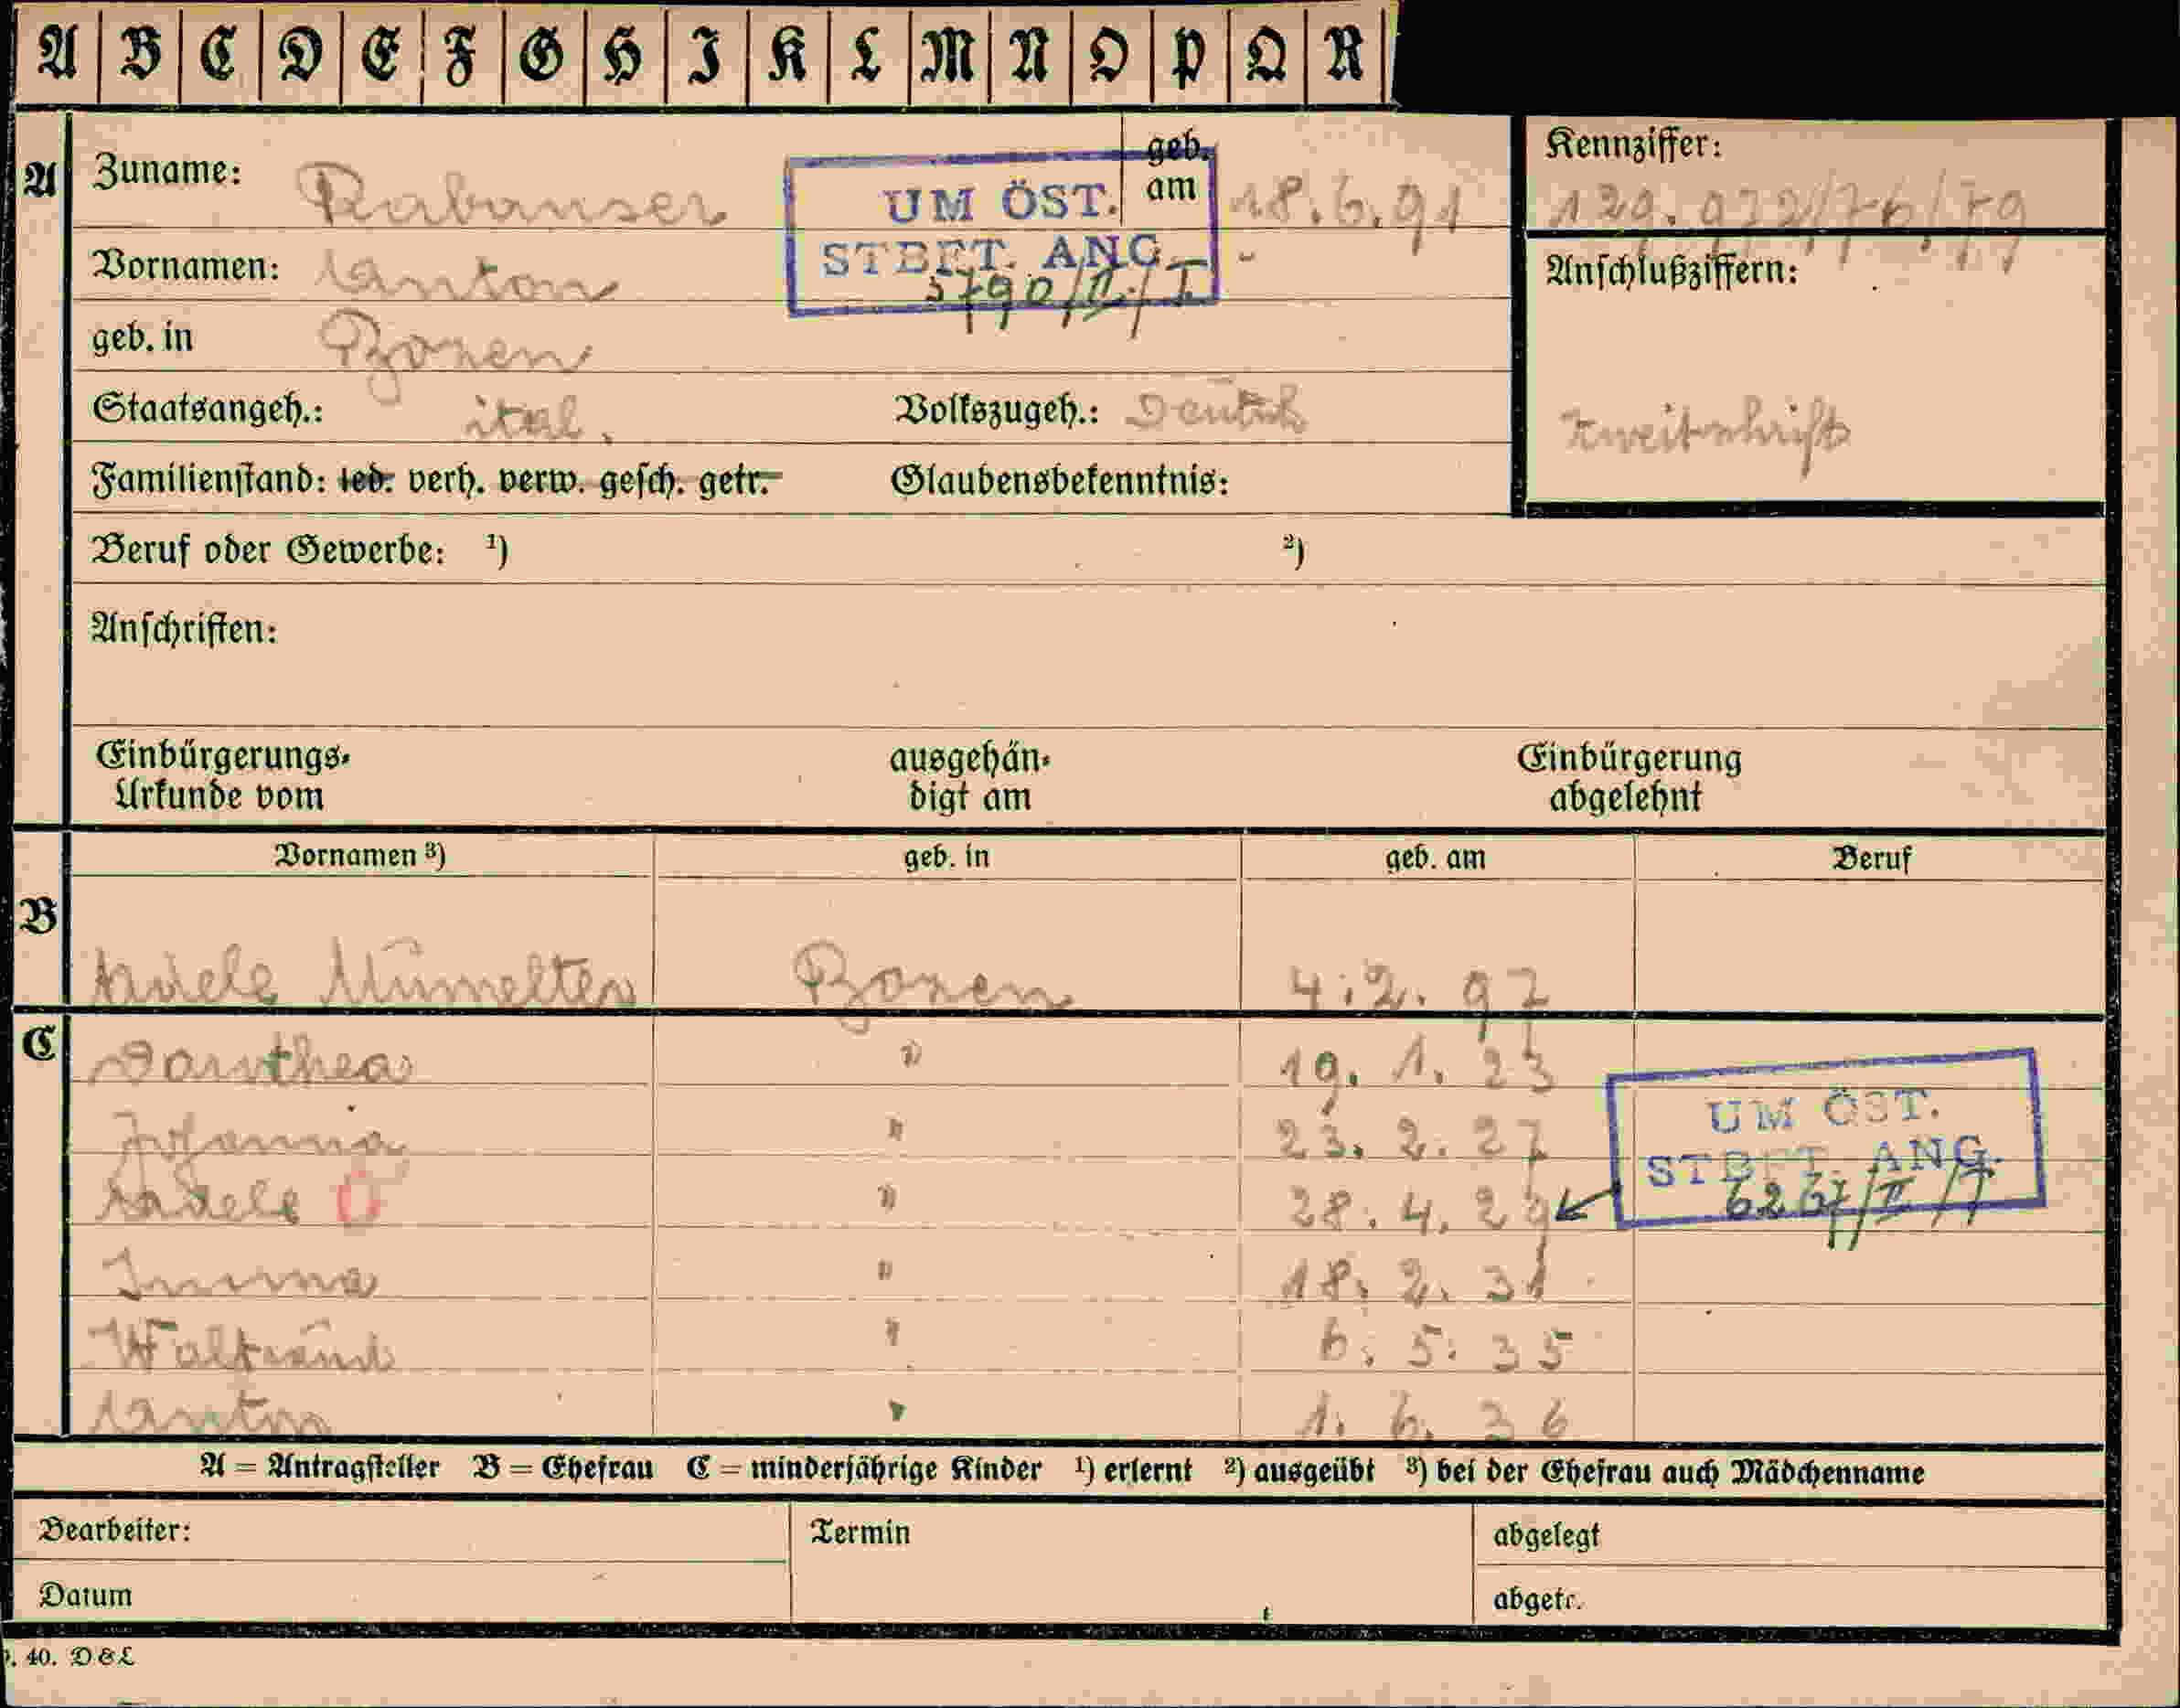 A B C D E F G H I K L M N O P Q R
A
Zuname: Rabanser
geb. am 18.6.91
Kennziffer:
129.972/76/79
UM ÖST.
STBFT. ANG.
5790/II/I
Vornamen: Anton
Anschlußziffern:
geb. in Bozen
Staatsangeh.: ital. Volkszugeh.: Deutsch
Zweitschrift
Familienstand: led. verh. verw. gesch. getr. Glaubensbekenntnis:
Beruf oder Gewerbe: ¹) ²)
Anschriften:
Einbürgerungs- ausgehän- Einbürgerung
Urkunde vom digt am abgelehnt
Vornamen ³) geb. in geb. am Beruf
B
Adele Mumelter Bozen 4.2.97
C
Dorothea " 19. 1. 23
Johanna " 23. 2. 27
Adele " 28. 4. 29
UM ÖST.
STBFT. ANG.
6267/II/I
Imma " 18. 2. 31
Waltraud " 6. 5. 35
Anton " 1. 6. 36
A = Antragsteller B = Ehefrau C = minderjährige Kinder ¹) erlernt ²) ausgeübt ³) bei der Ehefrau auch Mädchenname
Bearbeiter: Termin abgelegt
Datum abgetr.
40. D & L